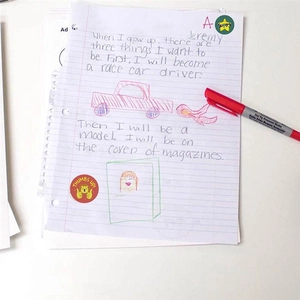 A
Jeremy
When I grow up, there are
three things I want to
be. First, I will become
a race car driver.
Then I will be a
model. I will be on
the cover of magazines.
THUMBS UP!
Ad